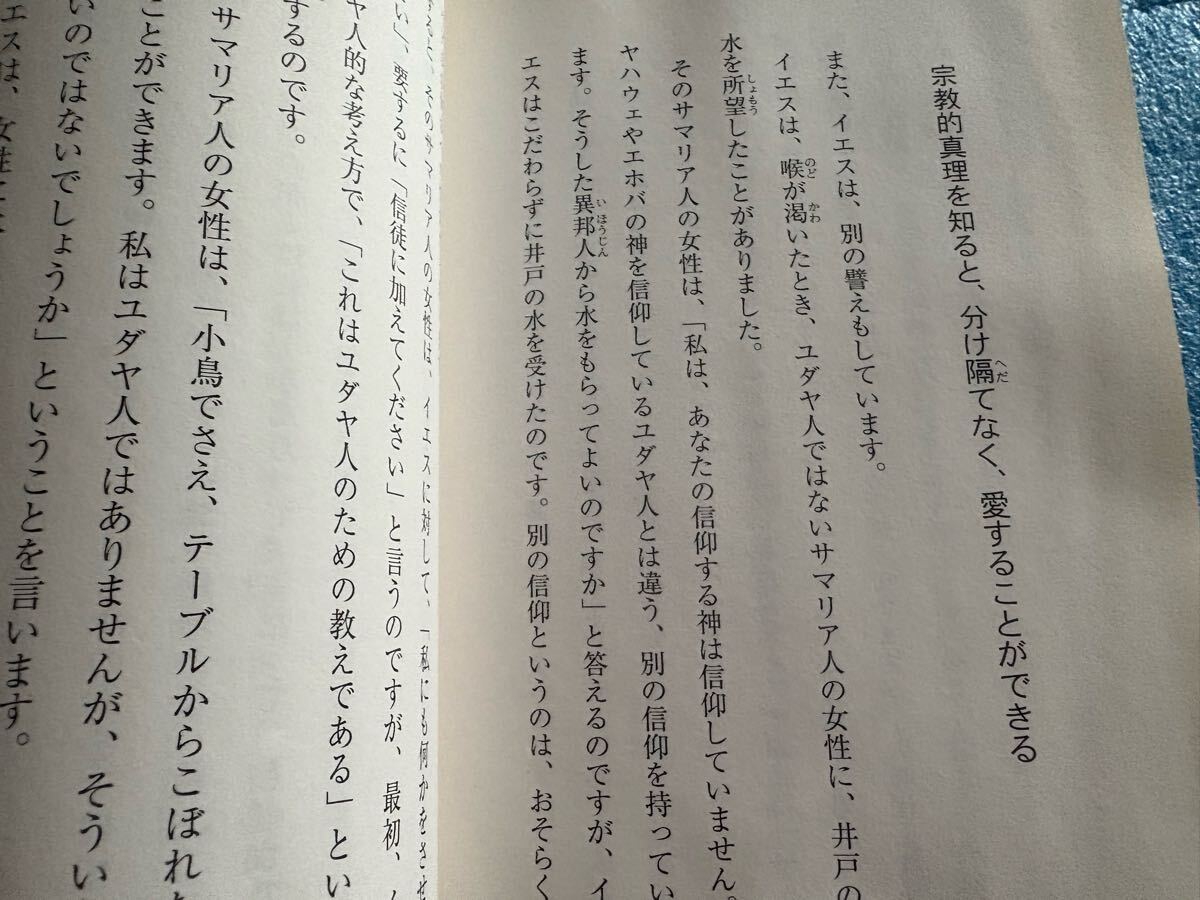 宗教的真理を知ると、分け隔てなく、愛することができる
また、イエスは、別の譬えもしています。
イエスは、喉が渇いたとき、ユダヤ人ではないサマリア人の女性に、井戸の
水を所望したことがありました。
そのサマリア人の女性は、「私は、あなたの信仰する神は信仰していません。
ヤハウェやエホバの神を信仰しているユダヤ人とは違う、別の信仰を持ってい
ます。そうした異邦人から水をもらってよいのですか」と答えるのですが、イ
エスはこだわらずに井戸の水を受けたのです。別の信仰というのは、おそらく
そのサマリア人の女性は、イエスに対して、「私にも何かをさせ
い」、要するに「信徒に加えてください」と言うのですが、最初、
ヤ人的な考え方で、「これはユダヤ人のための教えである」とい
するのです。
サマリア人の女性は、「小鳥でさえ、テーブルからこぼれ
ことができます。私はユダヤ人ではありませんが、そうい
いのではないでしょうか」ということを言います。
エスは、女性に